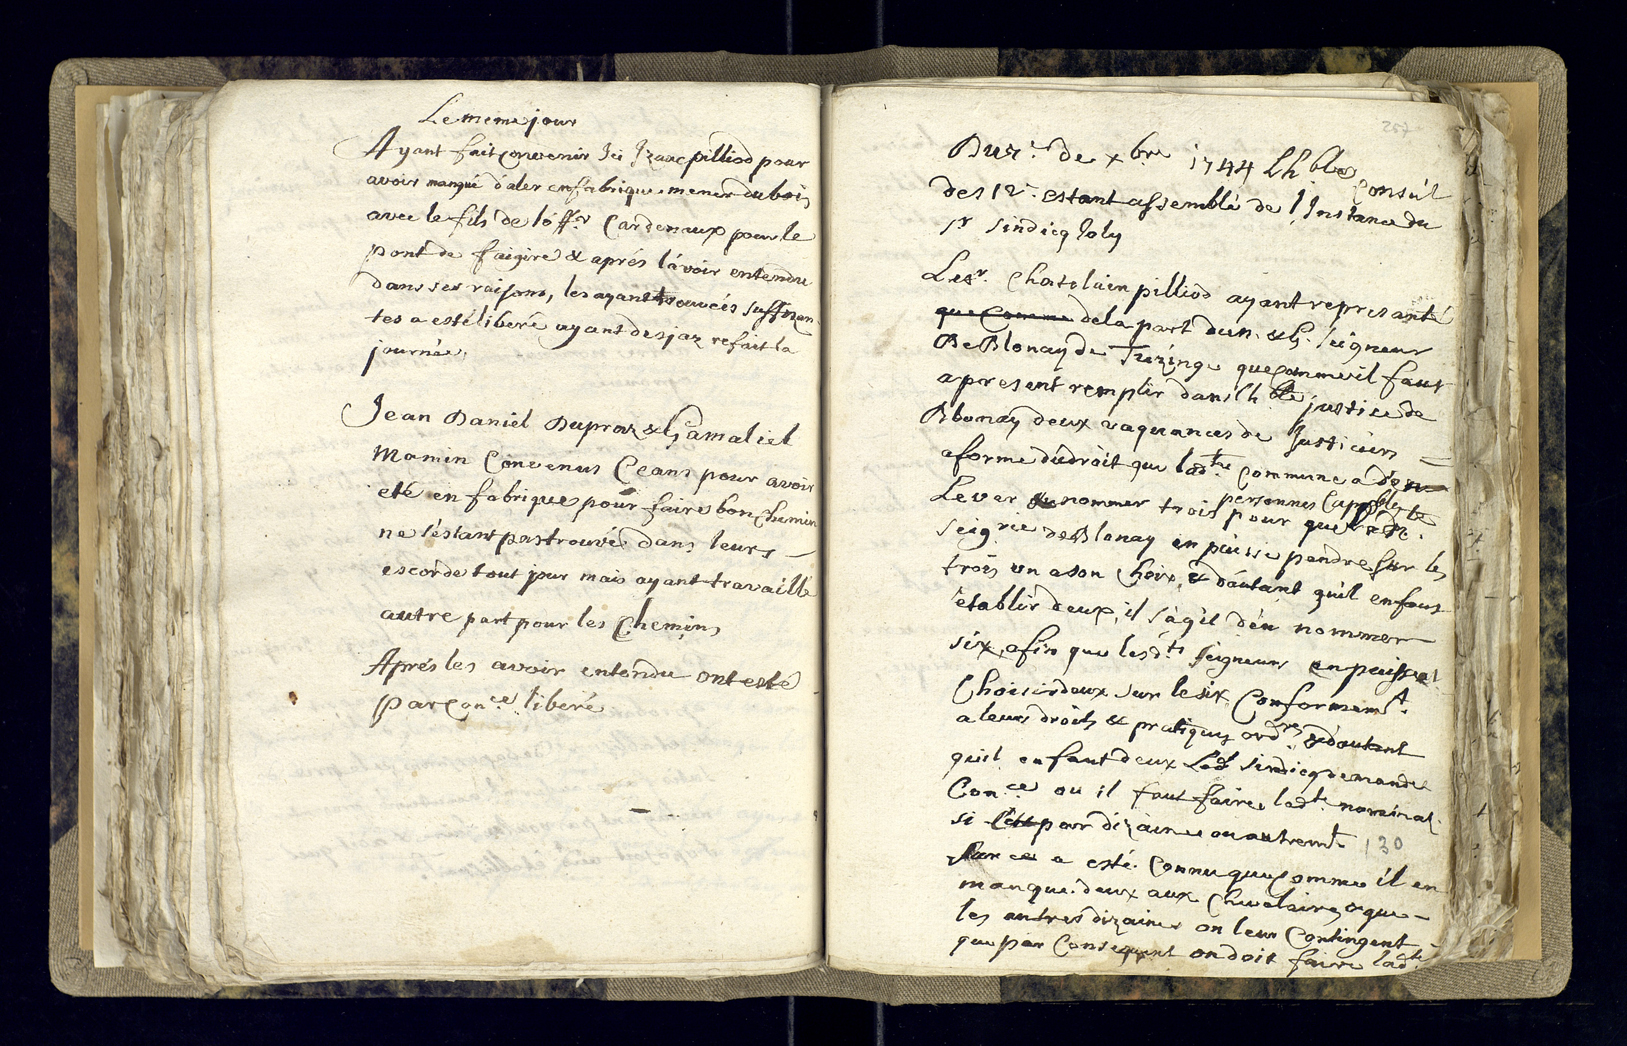 Le meme jour
Ayant fait convenir Ici Izaac pilliod pour
avoir manqué d'aler en fabrique mener du bois
avec le fils de l'off.er Cardenaux pour le
pont de faigire & aprés l'avoir entendu
dans ses raisons, les ayant trouvées suffizan
tes a esté liberé ayant desjaz refait la
journée,
Jean Daniel Dupraz & Gamaliel
Mamin Convenus Ceans pour avoir
eté en fabrique pour faire bon chemin
ne s'éstant pas trouvé dans leurs
escorde tout jour mais ayant travaillé
autre part pour les Chemins
Aprés les avoir entendu ont esté
par Con.ce liberé
257
Du 7.e de xbre 1744 Lh ble Conseil
des 12. estant assemblé de l'Instance du
Sr Sindicq Joly
Le sr. Chatelain pilliod ayant represanté
que Comme de la part du n. & G. Seigneur
De Blonay de Turzinge que comme il faut
apresent remplir dans lh ble justice de
Blonay deux vaquances de Justiciers
a forme du droit que lad.te Commune a
Lever nommer trois personnes Cappables
pour que
Seig.rie de Blonay en puisse pendre sur les
trois un a son Choix, & d'autant qu'il en faut
établir deux, il s'agit d'en nommer
six, afin que lesd.ts Seigneurs en puissent
Choisir deux sur le six Conformem.t
a leurs droits & pratiques ord.res & d'autant
quil en faut deux Led. Sindicq demande
Con.ce ou il faut faire lad.te nominat.
si C'est par dizaine ou autrem.t
130
Sur ce a esté Connu que comme il en
manque deux aux Chevalaires & que
les autres dizaines on leur Contingent
que par Consequent on doit faire lad.te